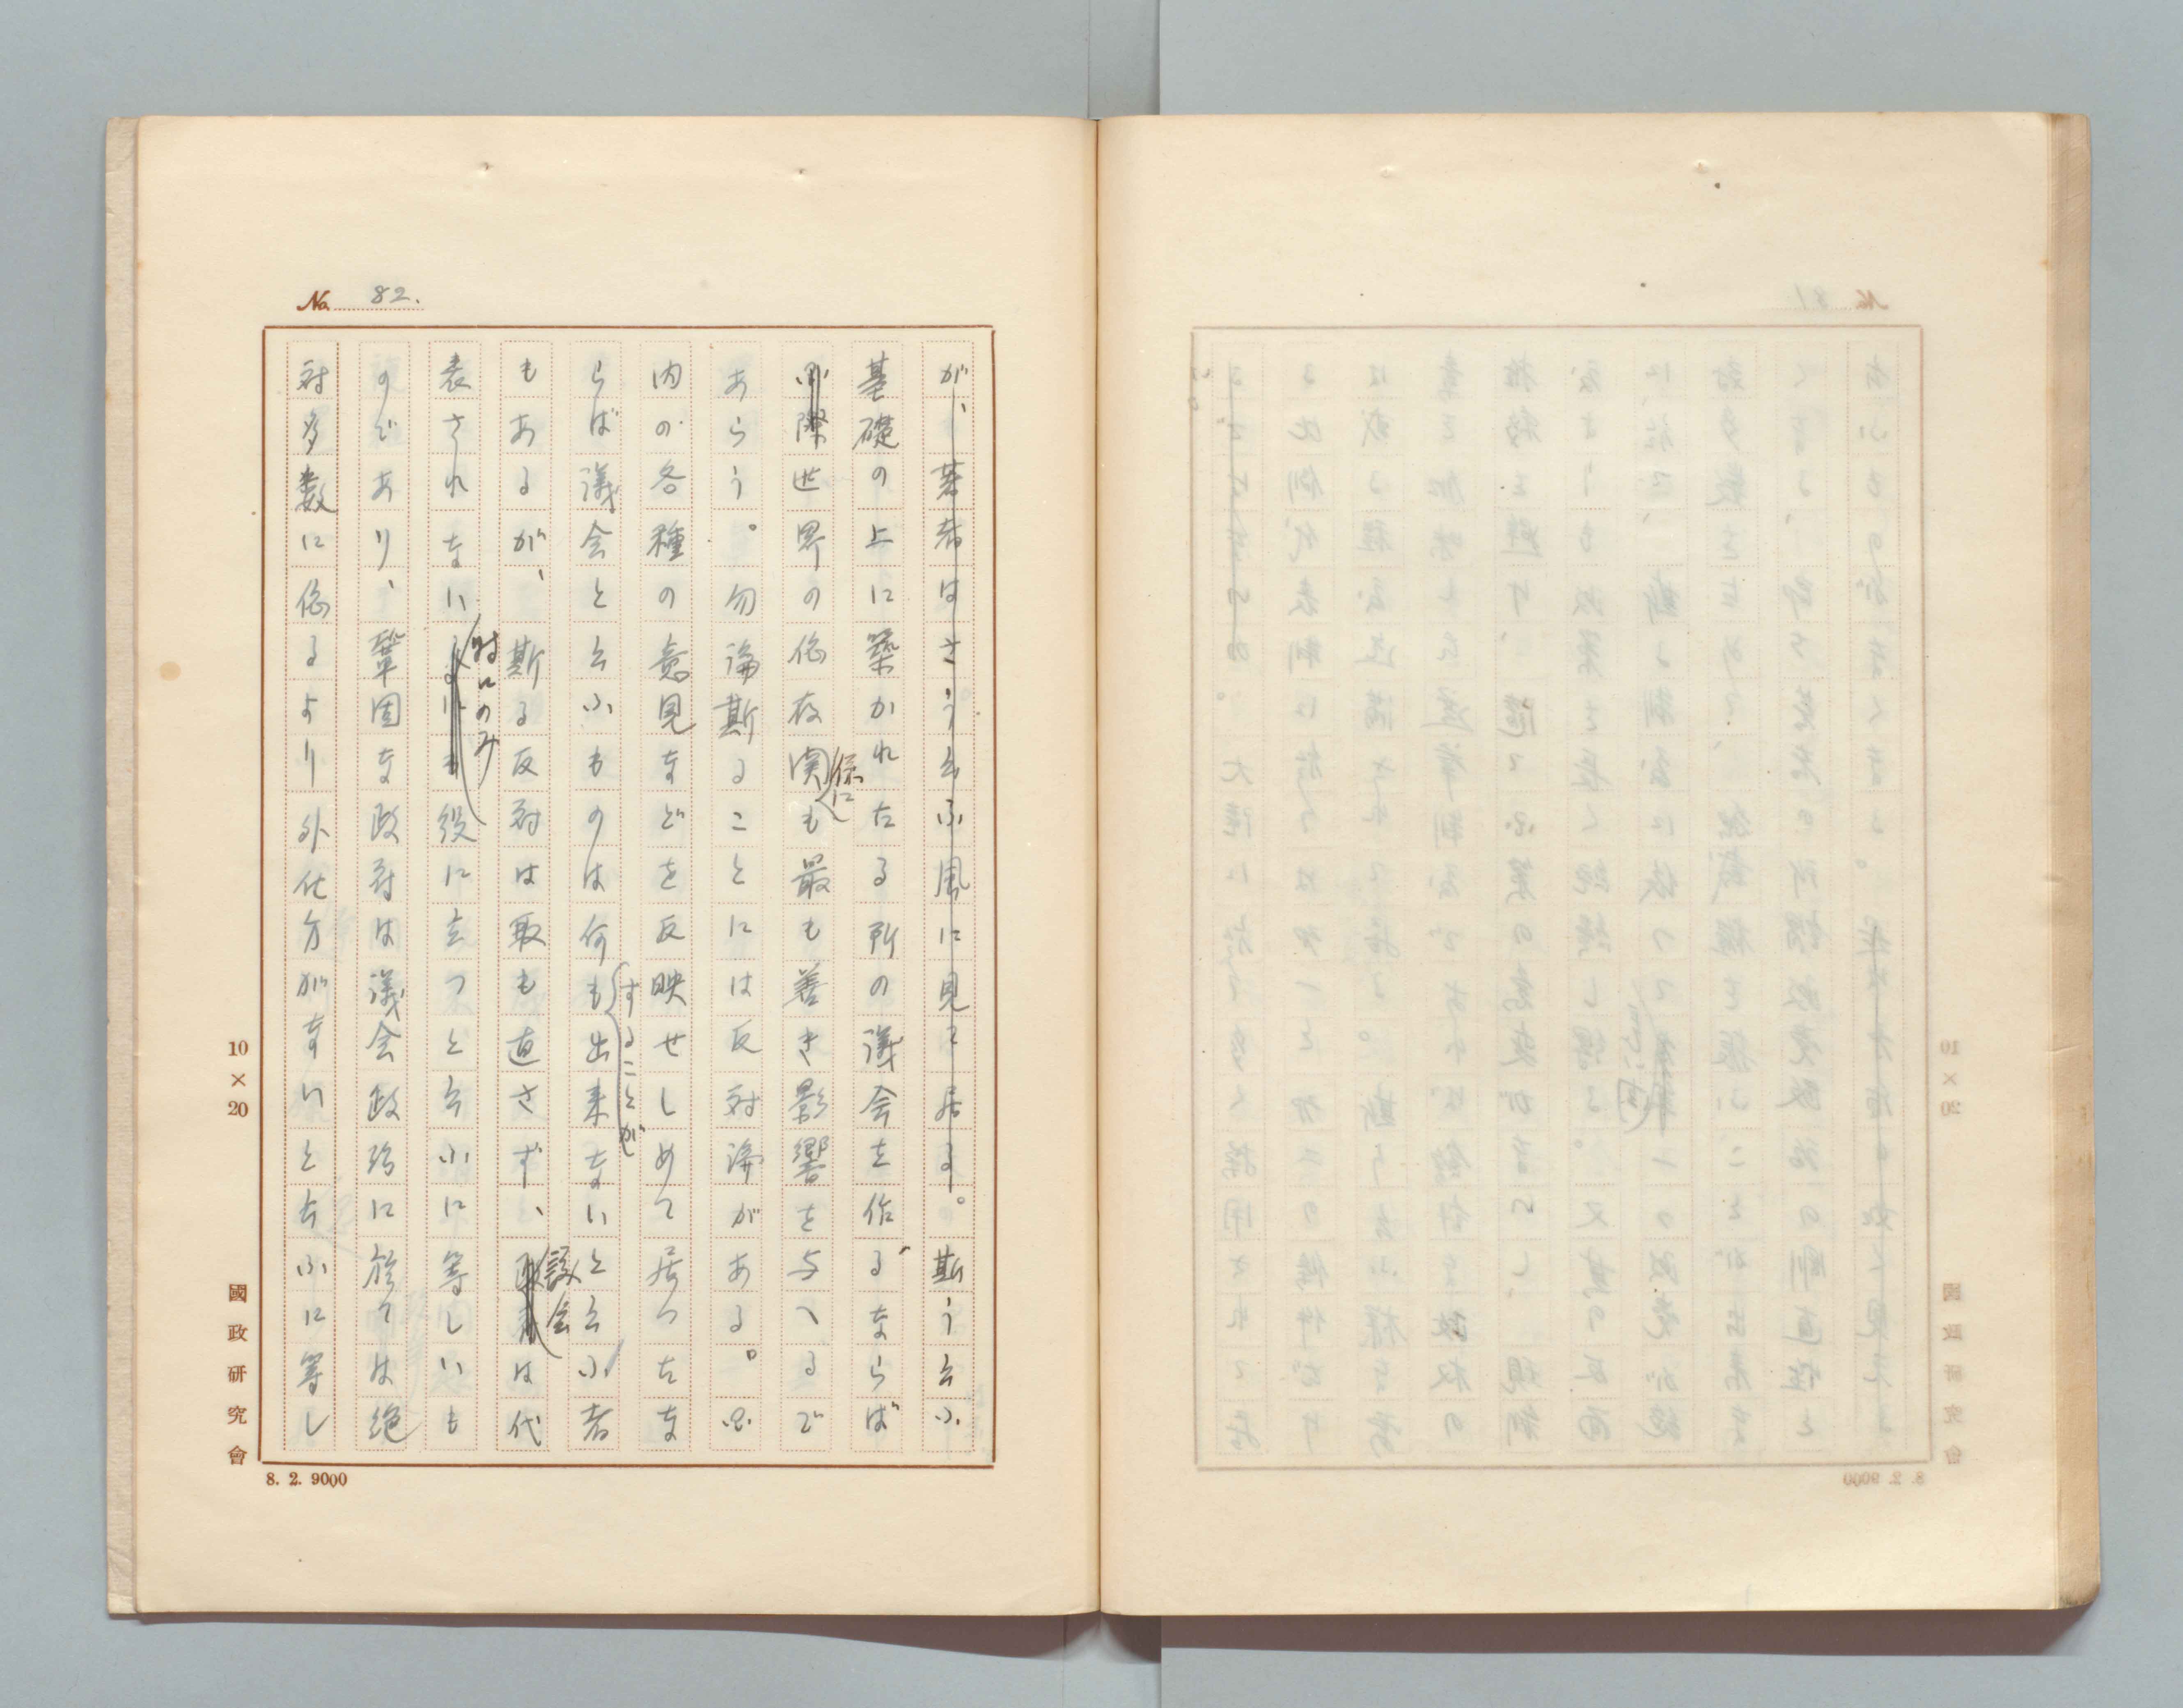 No. 82.
が、著者はさう云ふ風に見て居る。斯う云ふ
基礎の上に築かれたる所の議会を作るならば
世界の依存関係にも最も善き影響を与へるで
あらう。勿論斯ることには反対論がある。
内の各種の意見などを反映せしめて居つたな
らば議会と云ふものは何もすることが出来ないと云ふ者
もあるが、斯る反対は取も直さず、議会は代
表されない時にのみ役に立つと云ふに等しいも
のであり、鞏固な政府は議会政治に於ては絶
対多数に依るより外仕方がないと云ふに等し
10×20
國政研究會
8. 2. 9000